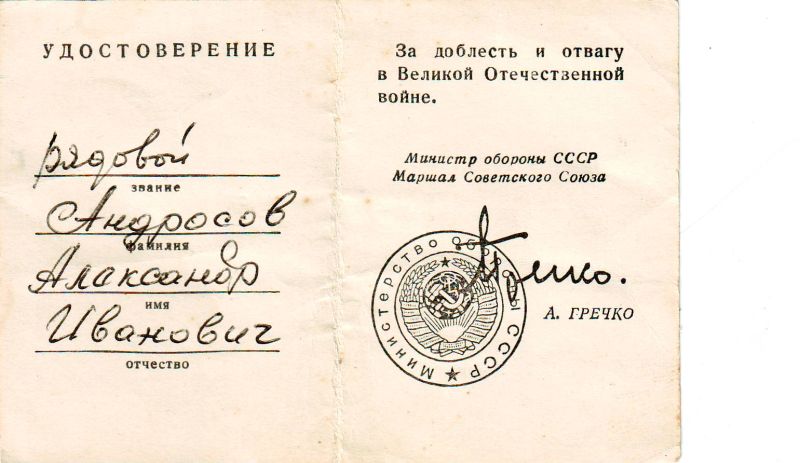 УДОСТОВЕРЕНИЕ
рядовой
звание
Андросов
фамилия
Александр
имя
Иванович
отчество
За доблесть и отвагу
в Великой Отечественной
войне.
Министр обороны СССР
Маршал Советского Союза
Министерство Обороны СССР
А. ГРЕЧКО